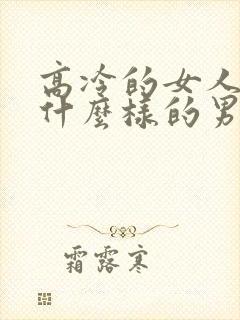 高冷的女人
什麼樣的男
霜露寒